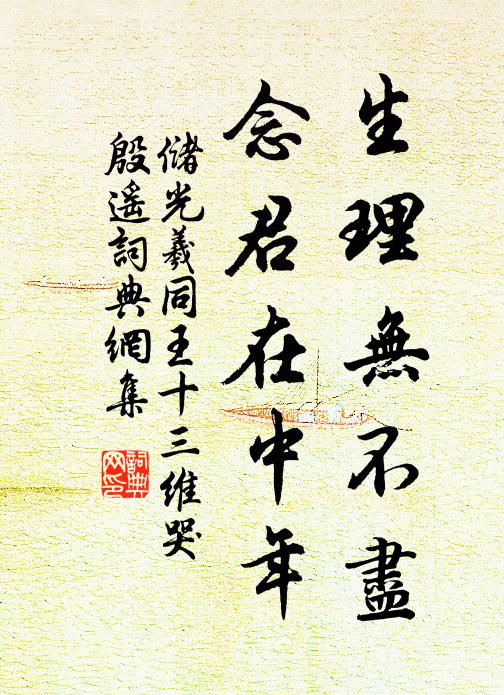 生理無不盡
念君在中年
儲光羲同王十三維哭
殷遥詞典網集
詞典網印